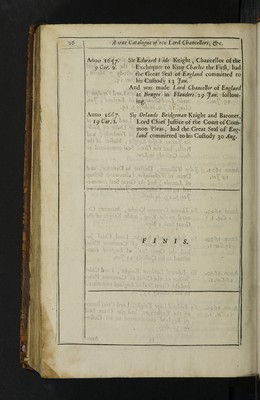 A true Catalogue of the Lord Chancellors, &c.
Anno 1657.
9 Car. 2.
Sir Edward Hide Knight, Chancellor of the
Exchequer to King Charles the First, had
the Great Seal of England committed to
his Custody 13 Jan.
And was made Lord Chancellor of England
at Bruges in Flanders 29 Jan. follow-
ing.
Anno 1667.
19 Car. 2.
Sir Orlando Bridgeman Knight and Baronet,
Lord Chief Justice of the Court of Com-
mon Pleas, had the Great Seal of Eng-
land committed to his Custody 30 Aug.
F I N I S.